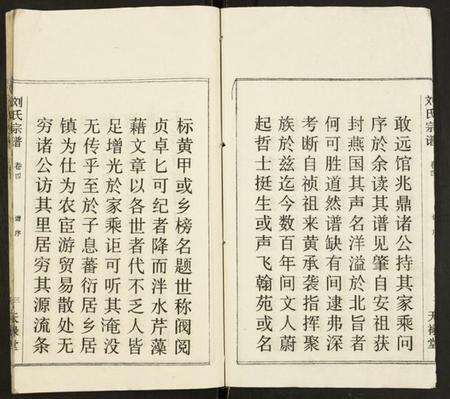 刘氏宗谱
卷四
谱序
天禄堂
敢远馆兆鼎诸公持其家乘问
序於余读其谱见肇自安祖获
封燕国其声名洋溢於北旨者
何可胜道然谱缺有间逮弗深
考断自祯祖来黄承袭指挥聚
族於兹迄今数百年间文人蔚
起哲士挺生或声飞翰苑或名
标黄甲或乡榜名题世称阀阅
贞卓匕可纪者降而泮水芹藻
藉文章以名世者代不乏人皆
足增光於家乘讵可听其淹没
无传乎至於子息蕃衍居乡居
镇为仕为农宦游贸易散处无
穷诸公访其里居穷其源流条
刘氏宗谱
卷四
谱序
三
天禄堂